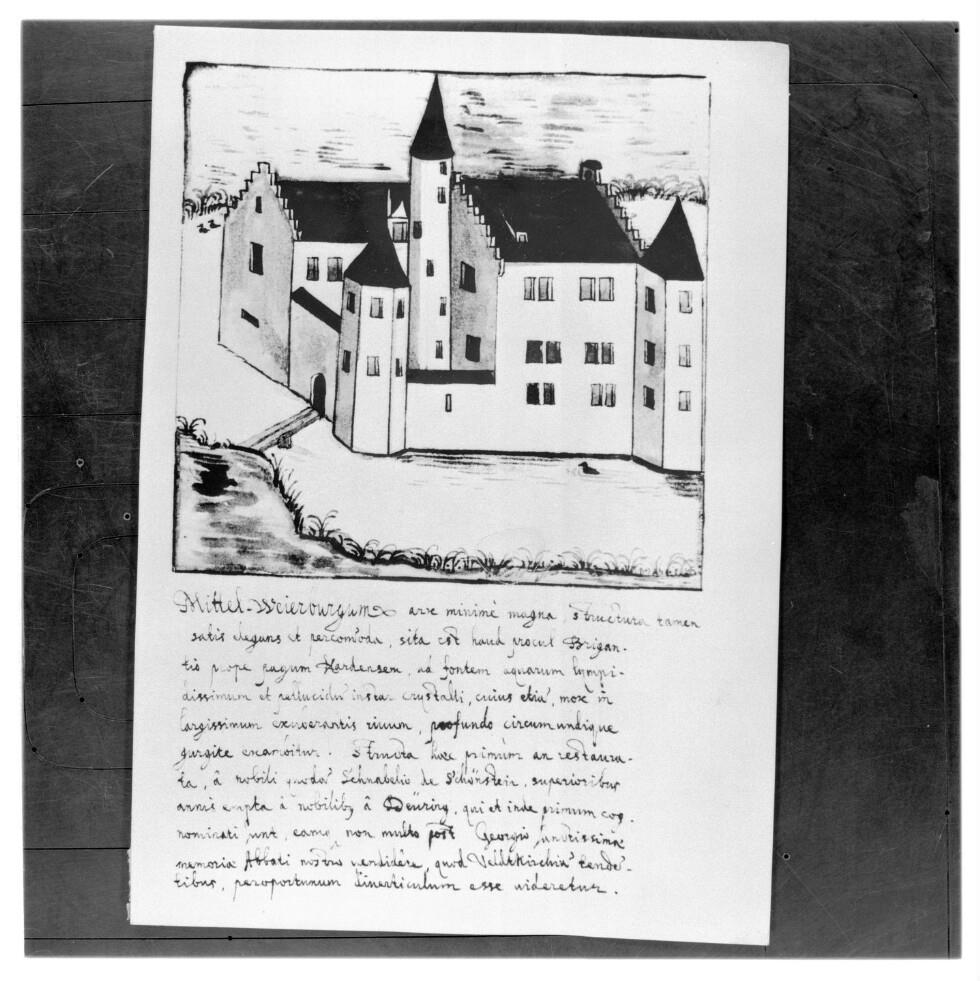 Mittel-Weierburgum arx minimè magna, structura tamen
satis elegans et percom̃oda, sita est haud procul Brigan-
tio prope pagum Hardensem, ad fontem aquarum lympi-
dissimum et pellucidũ instar crystalli, cuius etiã, mox in
largissimum exuberantis riuum, profundo circumundique
gurgite
Structa haec primùm an restaura-
ta, â nobili quodã Schnabelio de Schönstein, superioribus
annis empta â nobilibȝ â Deüring, qui et inde primum cog-
nominati sunt, eamq̃ non multo pòst Georgio
memoriæ Abbati nostro vendidêre, quod Veldtkirchiã tendẽ-
tibus, peropportunum diuerticulum esse uideretur.